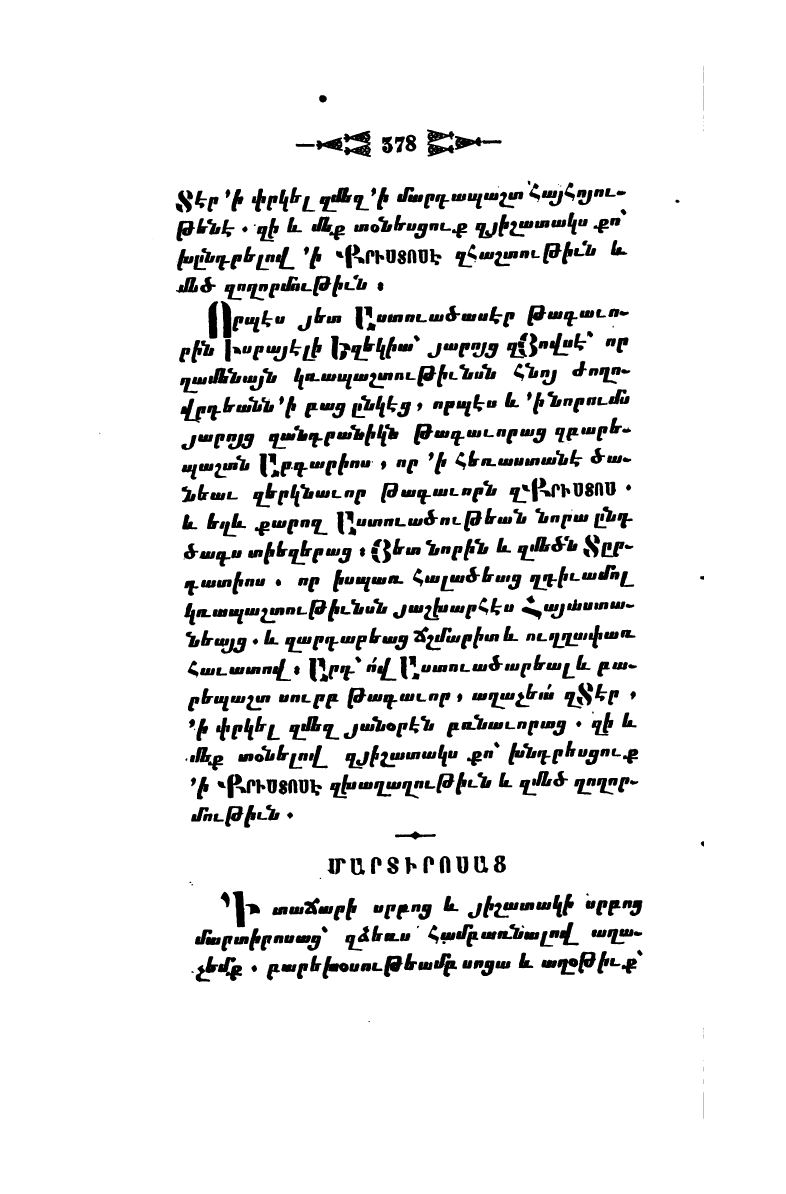 378
Տէր ՚ի փրկել զմեզ ՚ի մարդապաշտ հայհոյու-
թենէ . զի և մեք տօնեսցուք զյիշատակս քո՝
խընդրելով ՚ի ՔՐԻՍՏՈՍԷ զհաշտութիւն և
մեծ զողորմութիւն ։
Որպէս յետ Աստուածասէր թագաւո-
րին Իսրայէլի Եզեկիա՝ յարոյց զՅովսէ՝ որ
ղամենայն կռապաշտութիւնսն հնոյ ժողո-
վրդեանն ՚ի բաց ընկէց , որպէս և ՚ի նորումս
յարոյց զանդրանիկն թագաւորաց զբարե-
պաշտն Աբգարիոս , որ ՚ի հեռաստանէ ծա-
նեաւ զերկնաւոր թագաւորն զՔՐԻՍՏՈՍ .
և եղև քարոզ Աստուածութեան նորա ընդ
ծագս տիեզերաց ։ Յետ նորին և զմեծն Տըր-
դատիոս . որ իսպառ հալածեաց զդիւամոլ
կռապաշտութիւնսն յաշխարհէս Հայաստա-
նեայց . և զարդարեաց ճշմարիտ և ուղղափառ
հաւատով ։ Արդ՝ ո՛վ Աստուածարեալ և բա-
րեպաշտ սուրբ թագաւոր , աղաչեա՛ զՏէր ,
՚ի փրկել զմեզ յանօրէն բռնաւորաց . զի և
մեք տօնելով զյիշատակս քո՝ խնդրեսցուք
՚ի ՔՐԻՍՏՈՍԷ զխաղաղութիւն և զմեծ զողոր-
մութիւն .
ՄԱՐՏԻՐՈՍԱՑ
՚Ի տաճարի սրբոց և յիշատակի սրբոց
մարտիրոսաց՝ զձեռս համբառնալով աղա-
չեմք . բարեխօսութեամբ սոցա և աղօթիւք՝